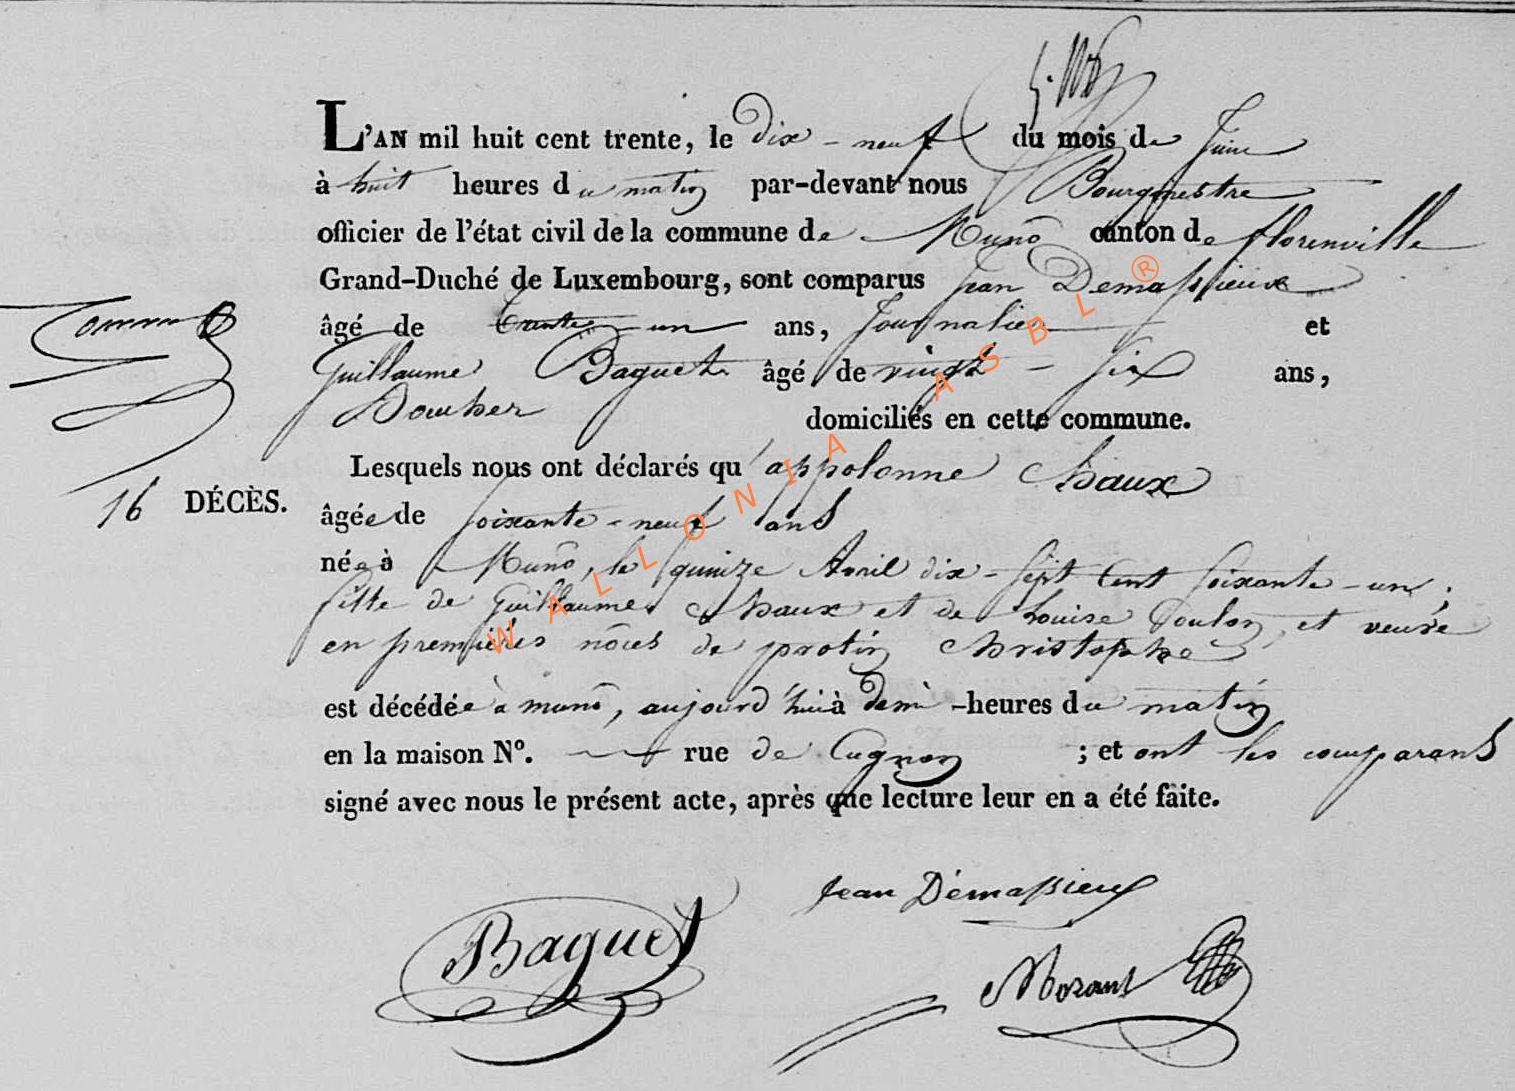 L'AN mil huit cent trente, le dix-neuf du mois de Juin
à huit heures du matin par-devant nous Bourgmestre
officier de l'état civil de la commune de Muno canton de florenville
Grand-Duché de Luxembourg, sont comparus Jean Demassieux
âgé de trente-un ans, Journalier et
Guillaume Baguet âgé de vingt-six ans,
domiciliés en cette commune.
Lesquels nous ont déclarés qu'appolonne Chaux
16 DÉCÈS.
âgée de soixante-neuf ans
née à Muno, le quinze Avril dix-sept Cent soixante-un;
fille de Guillaume Chaux et de Louise Doulon, et veuve
en premières noces de protin Christophe
est décédée à muno, aujourd'hui à demi-heures du matin
en la maison N°. rue de Cugnon ; et ont les comparans
signé avec nous le présent acte, après que lecture leur en a été faite.
Jean Démassieux
Baguet
Morant
WALLONIA ASBL ®